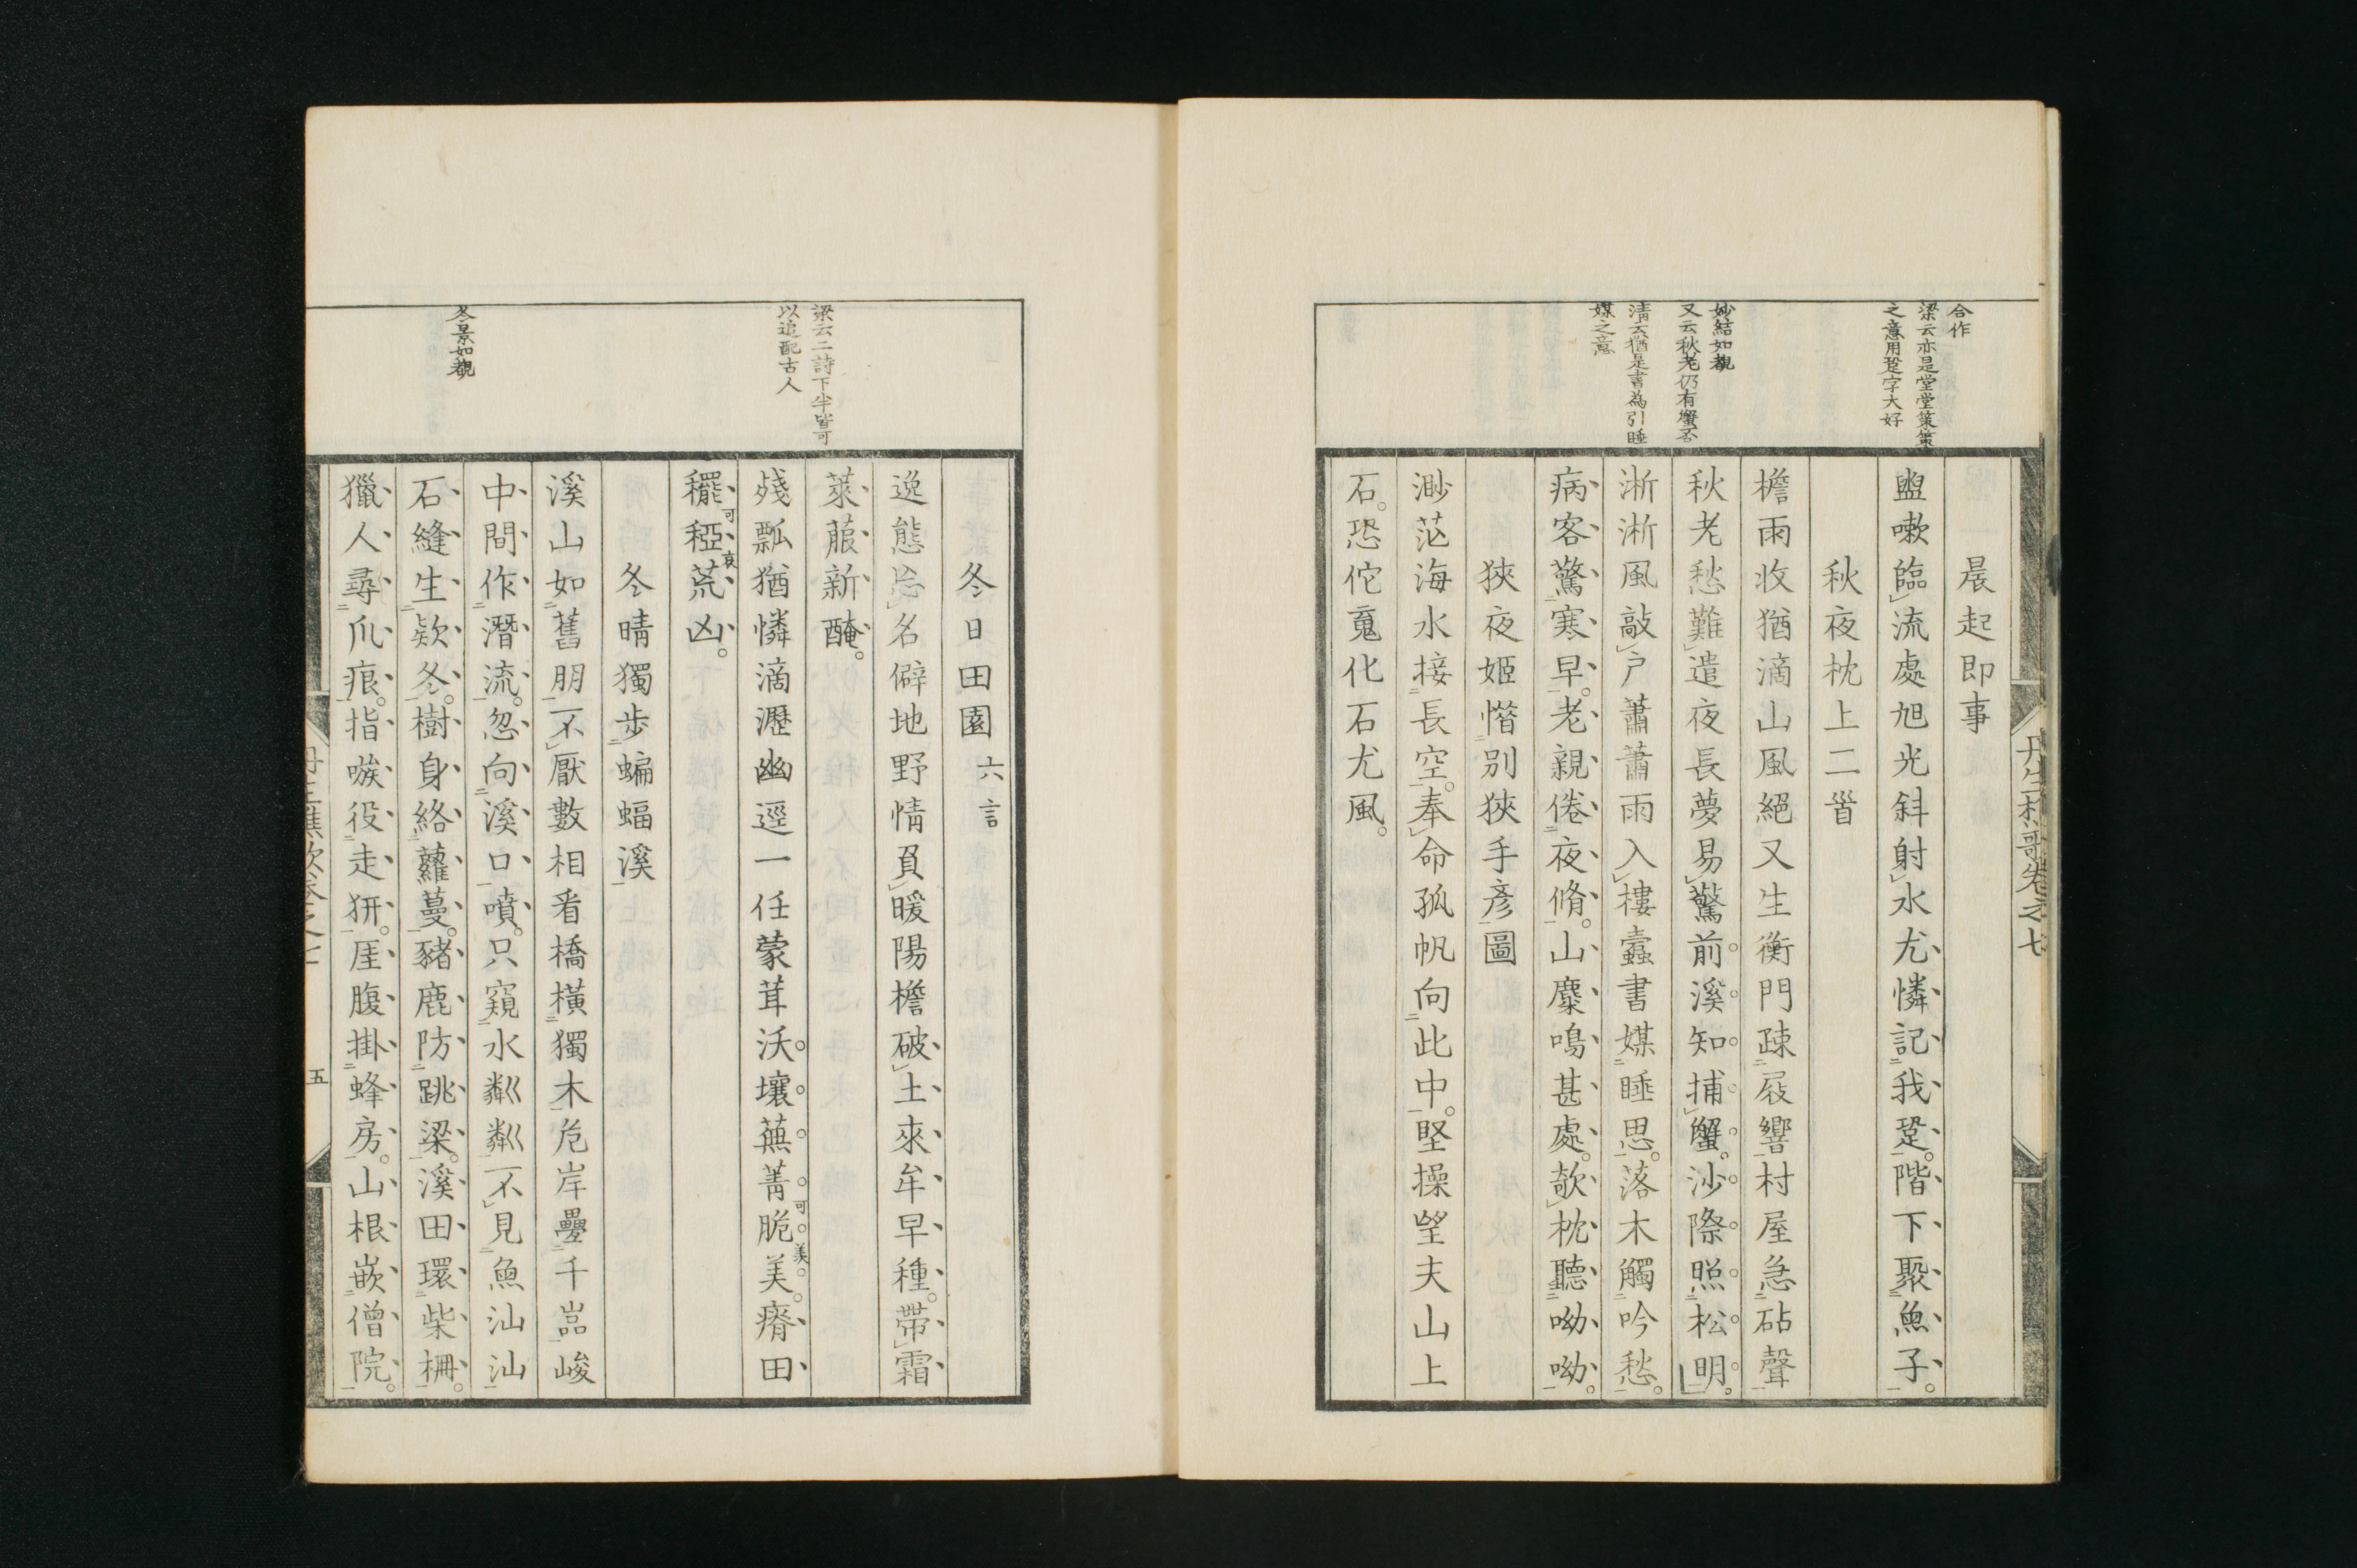 合作
梁云亦是堂堂策策
之意用跫字大好
妙結如覩
又云秋老仍有蟹否
清云猶是書為引睡
媒之意
晨起即事
盥嗽臨流處旭光斜射水尤憐記我跫階下聚魚子
秋夜枕上二首
檐雨收猶滴山風絕又生衡門疎屐響村屋急砧聲
秋老愁難遣夜長夢易驚前溪知捕蟹沙際照松明
淅淅風敲戶蕭蕭雨入樓蠹書媒睡思落木觸吟愁
病客驚寒早老親倦夜脩山麋鳴甚處欹枕聽呦呦
狹夜姬惜別狹手彥圖
渺茫海水接長空奉命孤帆向此中堅操望夫山上
石恐佗䰟化石尤風
梁云二詩下半皆可
以追配古人
冬景如覩
冬日田園 六言
逸態忘名僻地野情負暖陽檐破土來牟早種帶霜
萊菔新醃
殘瓢猶憐滴瀝幽逕一任蒙茸沃壤蕪菁可脆美美瘠田
䆉可稏哀荒凶
冬晴獨步蝙蝠溪
溪山如舊朋不厭數相看橋橫獨木危岸疊千嵓峻
中間作潛流忽向溪口噴只窺水粼粼不見魚汕汕
石縫生欵冬樹身絡蘿蔓豬鹿防跳梁溪田環柴柵
獵人尋爪痕指嗾役走犴厓腹掛蜂房山根嵌僧院
五